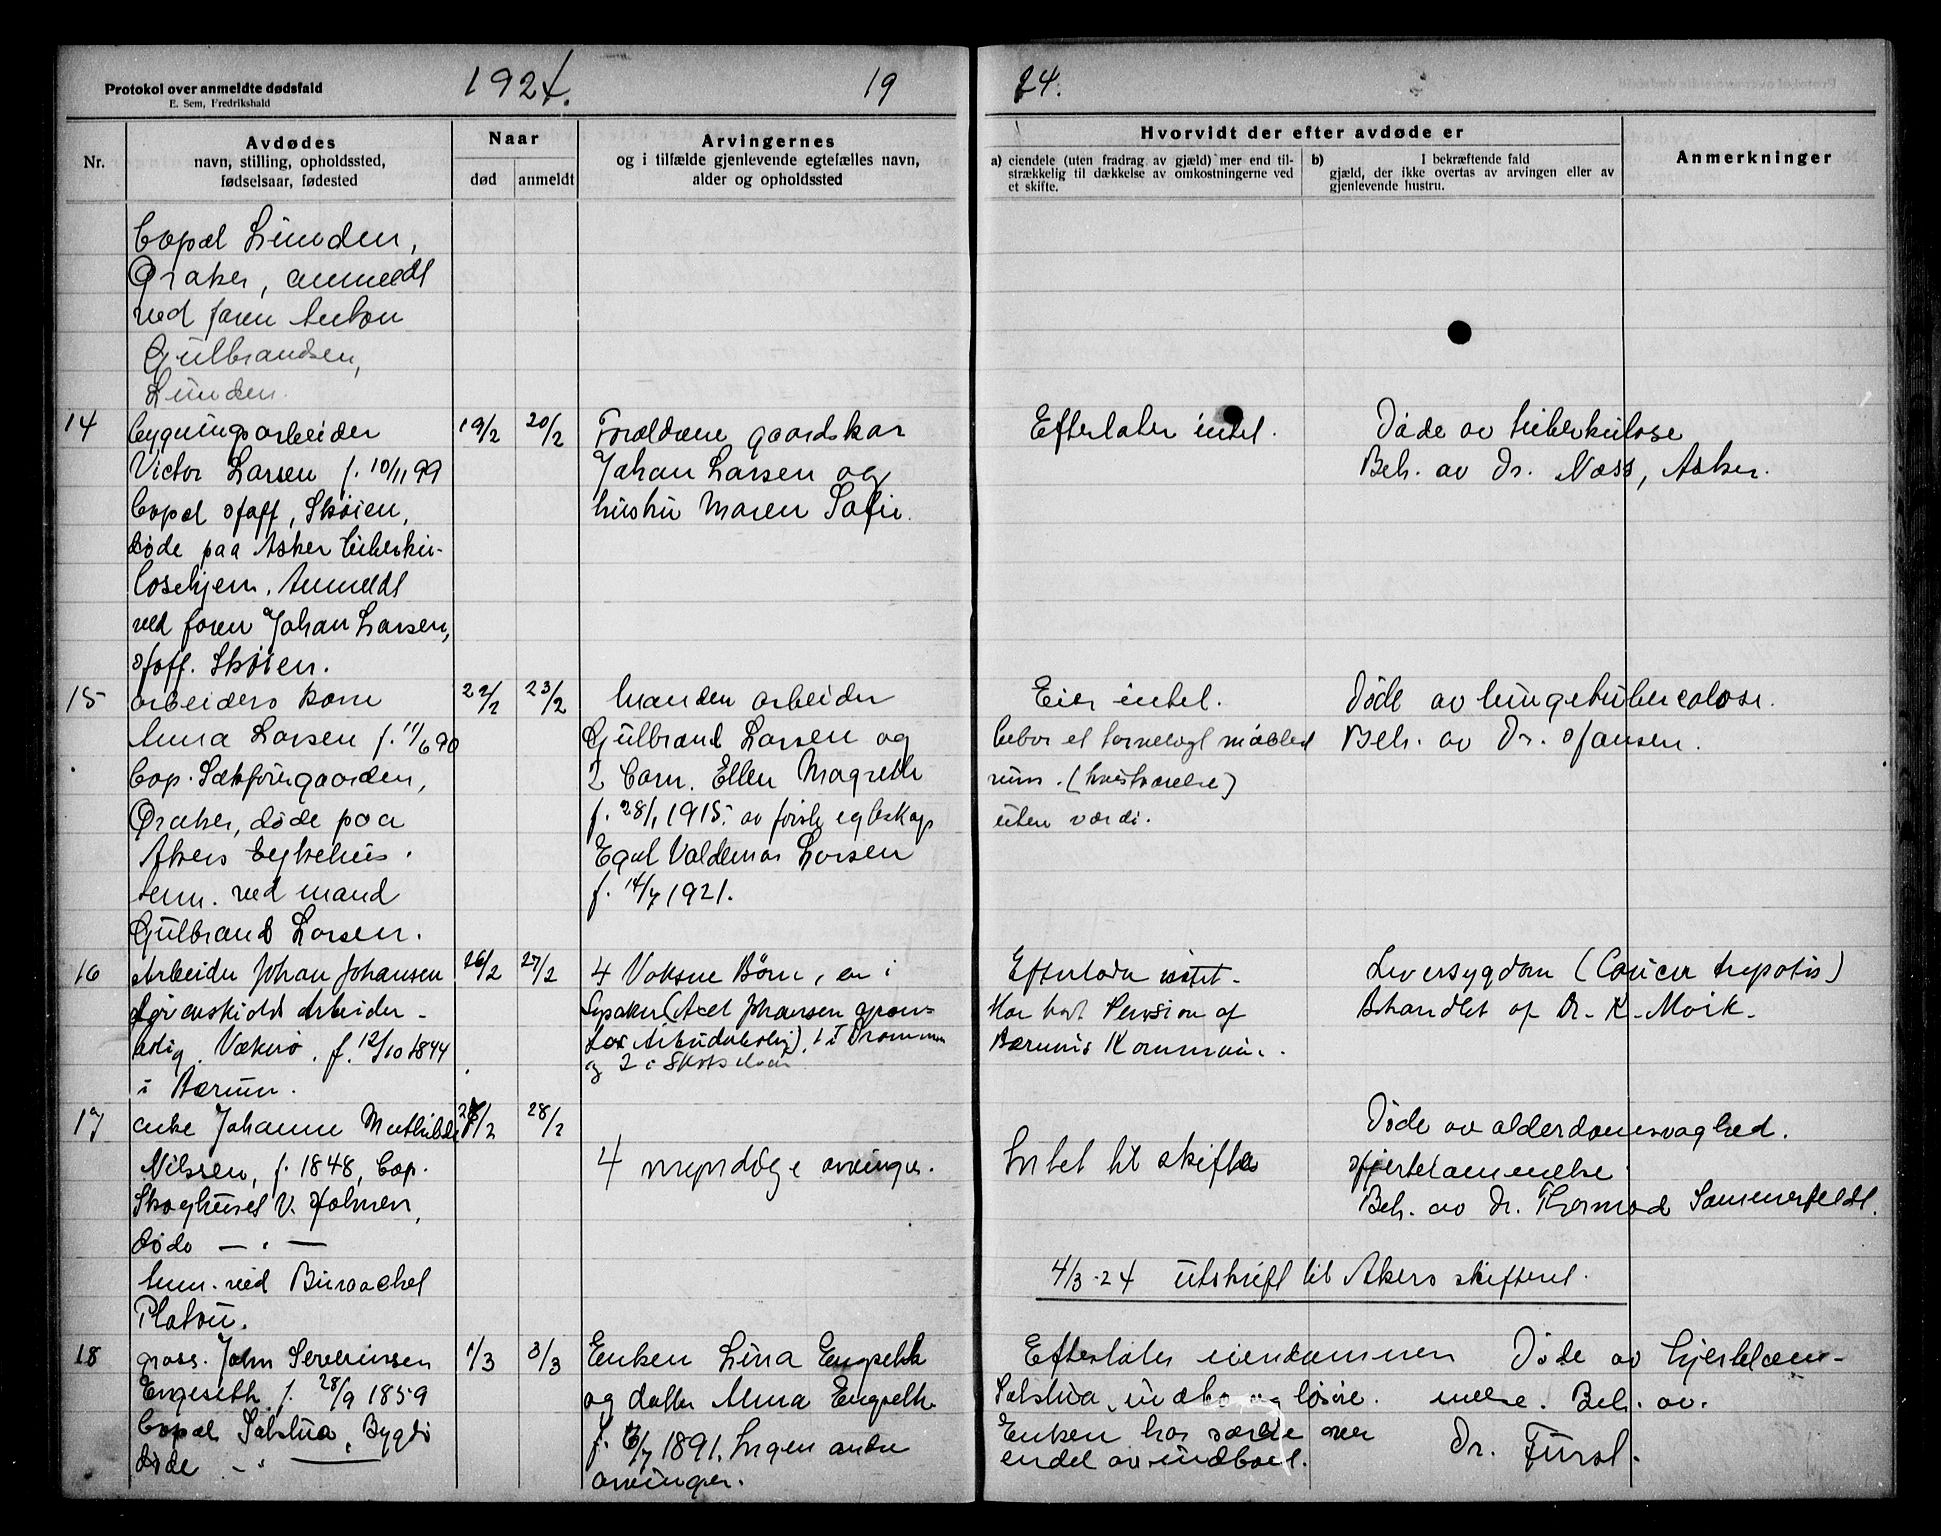 Protokol over anmeldte dødsfald
E. Sem, Fredrikshald
1924.
19
24.
Nr.
Avdødes
navn, stilling, opholdssted,
fødselsaar, fødested
Naar
død
anmeldt
Arvingernes
og i tilfælde gjenlevende egtefælles navn,
alder og opholdssted
Hvorvidt der efter avdøde er
a) eiendele (uten fradrag av gjæld) mer end til-
strækkelig til dækkelse av omkostningerne ved
et skifte.
b) I bekræftende fald
gjæld, der ikke overtas av arvingen eller av
gjenlevende hustru.
Anmerkninger
bopæl Lunden,
Øraker, anmeldt
ved faren Anton
Gulbrandsen,
Lunden.
14
bygningsarbeider
Victor Larsen f. 10/11 99
bopæl Hoff, Skøien,
døde paa Asker tuberku-
losehjem. Anmeldt
ved faren Johan Larsen,
Hoff. Skøien.
19/2
20/2
Forældrene gaardskar
Johan Larsen og
hustru Maren Sofie.
Efterlater intet.
Døde av tuberkulose
Beh. av Dr. Næss, Asker.
15
arbeiders kone
Anna Larsen f. 11/6 90
bop. Sætkjerngaarden,
Øraker, døde paa
Akers sykehus.
Anm. ved mand
Gulbrand Larsen.
22/2
23/2
Manden arbeider
Gulbrand Larsen og
2 barn. Ellen Magrethe
f. 28/1 1915. av første egteskap
Egil Valdemar Larsen
f. 14/7 1921.
Eier intet.
bebor et tarvelagt møblert
rum. (kvistværelse)
uten værdi.
Døde av lungetubercolose.
Beh. av Dr. Hansen.
16
Arbeider Johan Johansen
Løvenskiolds Arbeider-
bolig. Vækerø. f. 12/10 1844
i Bærum.
26/2
27/2
4 Voksne Børn, en i
Lysaker (Axel Johansen
Arbeiderbolig), 1 i Drammen
og 2 i Skotselven
Efterlader intet.
Har havt Pension af
Bærums Kommune.
Leversygdom (Cancer hepatis)
Behandlet af Dr. K. Mork.
17
enke Johanne Mathilde
Nilssen, f. 1848, bop.
Skoghuset v. Holmen,
døde — " —
Anm. ved Bureauchef
Platou.
28/2
4 myndige arvinger.
Intet til skifte
Døde av alderdomsvaghed.
Hjertelammelse
Beh. av Dr. Thormod Sommerfeldt.
4/3-24 utskrift til Akers skifteret.
18
gross. John Severinsen
Engeseth f. 28/9 1859
bopæl Solstua, Bygdø
døde — " —
1/3
3/3
Enken Lina Engseth
og datter Anna Engseth
1891. Ingen andre
arvinger.
Efterlater eiendommen
Solstua, indbo og løsøre.
Enken har særeie over
endel av indboet.
Døde av hjertelam-
melse. Beh. av.
Dr. Fürst.